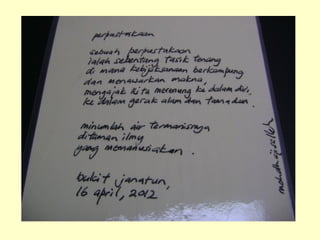 perpustakaan
sebuah perpustakaan
ialah sebentang tasik tenang
di mana kebijaksanaan berkampung
dan menawarkan makna,
mengajak kita merenung ke dalam diri,
ke dalam gerak alam dan tamadun.
minumlah air termanisnya
ditaman ilmu
yang memanusiakan.
bukit janatun,
16 april, 2012